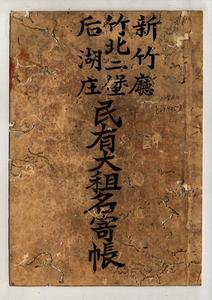 新竹廳
竹北二堡
后湖庄
民有大租名寄帳